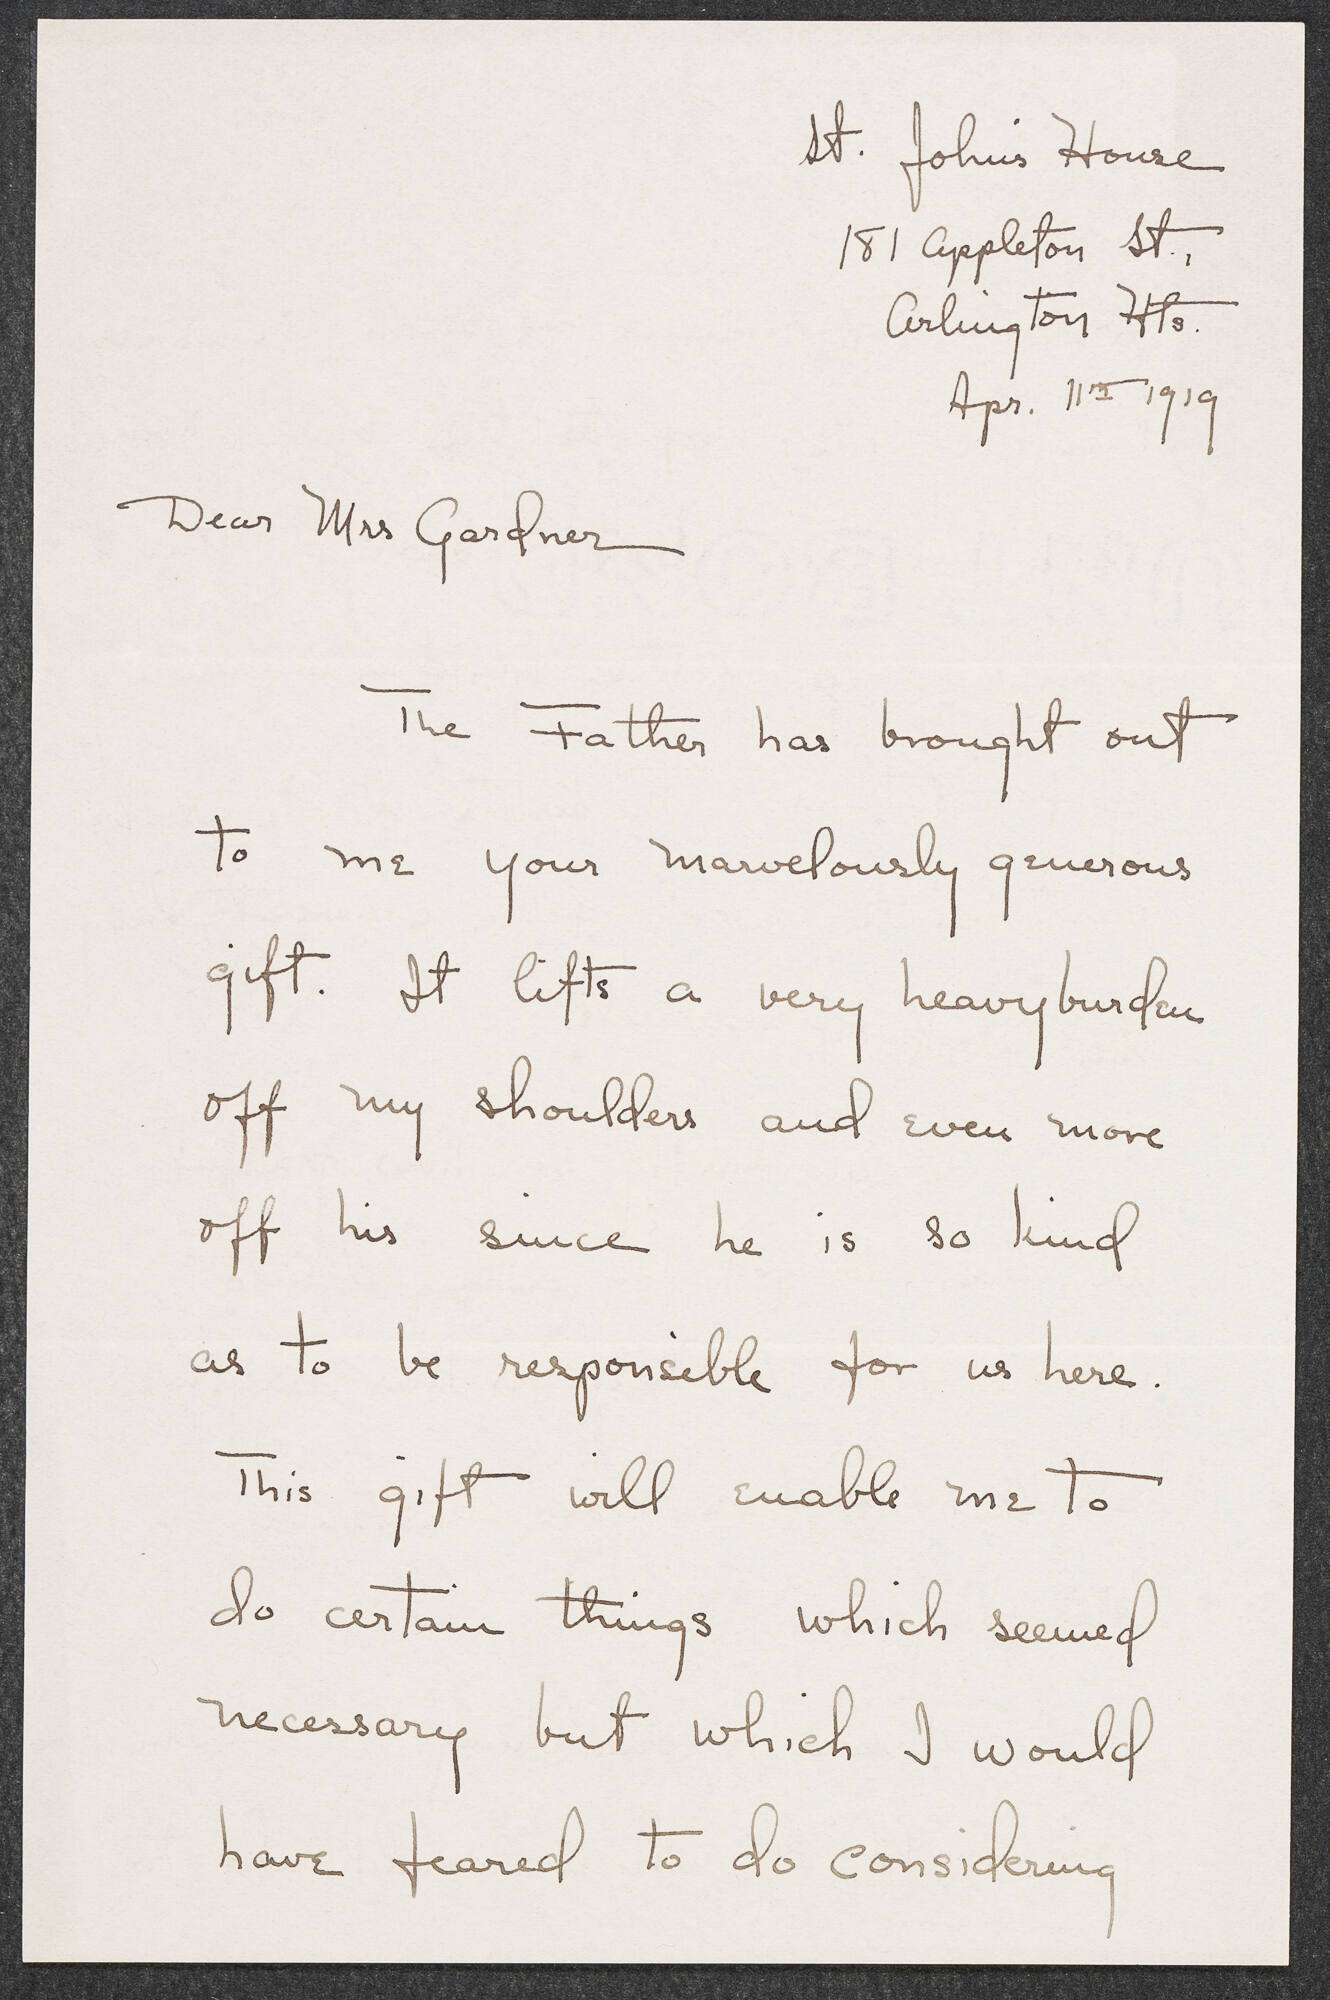 St. John's House
181 Appleton St.,
Arlington Hts.
Apr. 11th 1919
Dear Mrs Gardner
The Father has brought out
to me your marvelously generous
gift. It lifts a very heavy burden
off my shoulders and even more
off his since he is so kind
as to be responsible for us here.
This gift will enable me to
do certain things which seemed
necessary but which I would
have feared to do considering